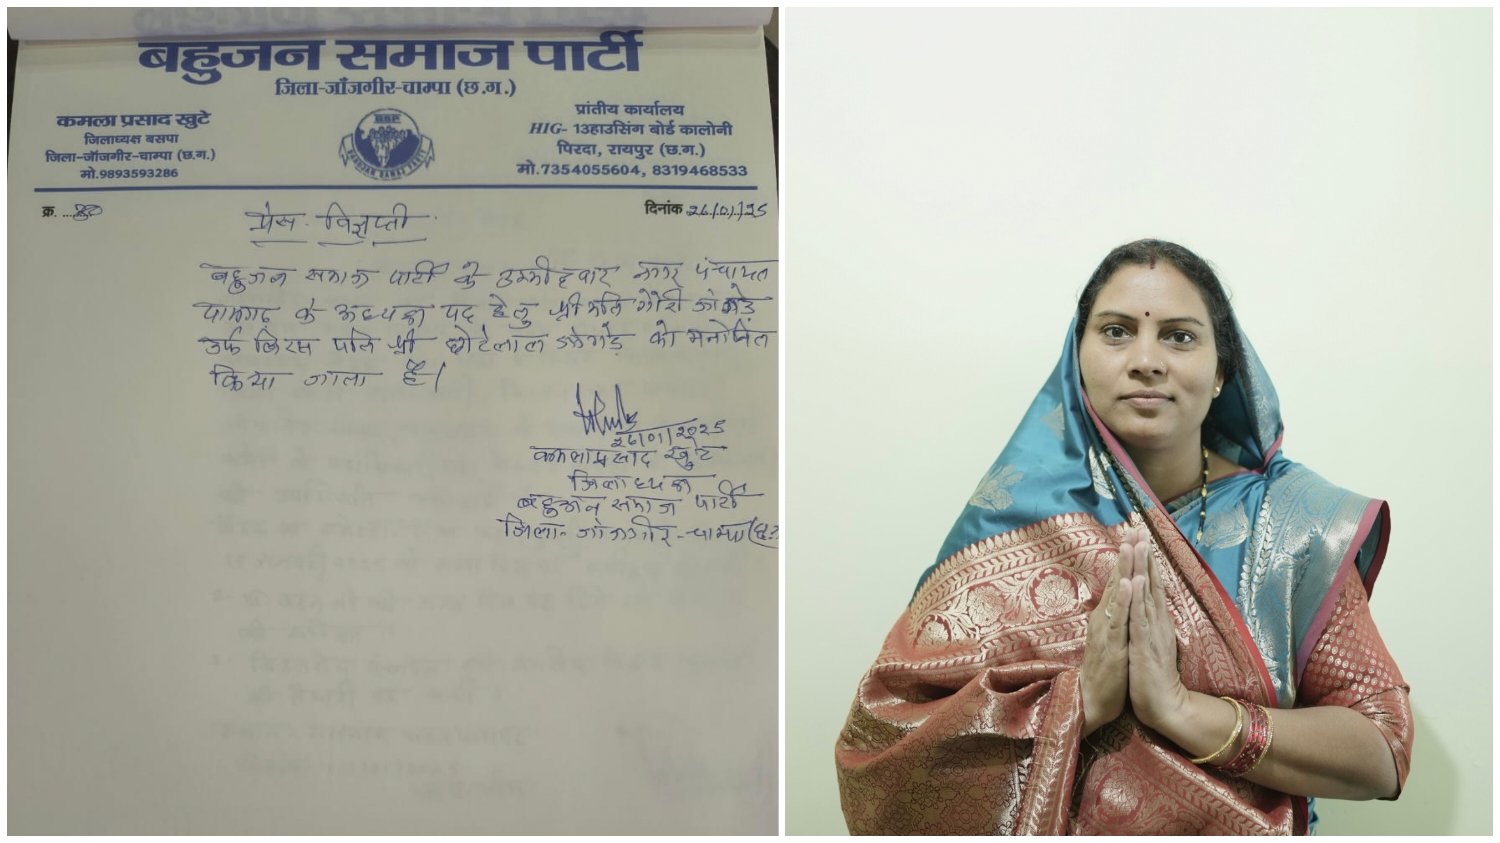 बहुजन समाज पार्टी
जिला-जाँजगीर-चाम्पा (छ.ग.)
कमला प्रसाद खुटे
जिलाध्यक्ष बसपा
जिला-जाँजगीर-चाम्पा (छ.ग.)
मो.9893593286
BSP
BAHUJAN SAMAJ PARTY
प्रांतीय कार्यालय
HIG- 13हाउसिंग बोर्ड कालोनी
पिरदा, रायपुर (छ.ग.)
मो.7354055604, 8319468533
क्र. ....
दिनांक 26/01/25
प्रेस विज्ञप्ती
बहुजन समाज पार्टी के उम्मीदवार नगर पंचायत
पामगढ़ के अध्यक्ष पद हेतु श्रीमति गौरी जांगड़े
उर्फ किरण पति श्री छोटेलाल जांगड़े को मनोनित
किया जाता है।
26/01/2025
कमलाप्रसाद खुटे
जिलाध्यक्ष
बहुजन समाज पार्टी
जिला- जांजगीर-चाम्पा (छ.ग